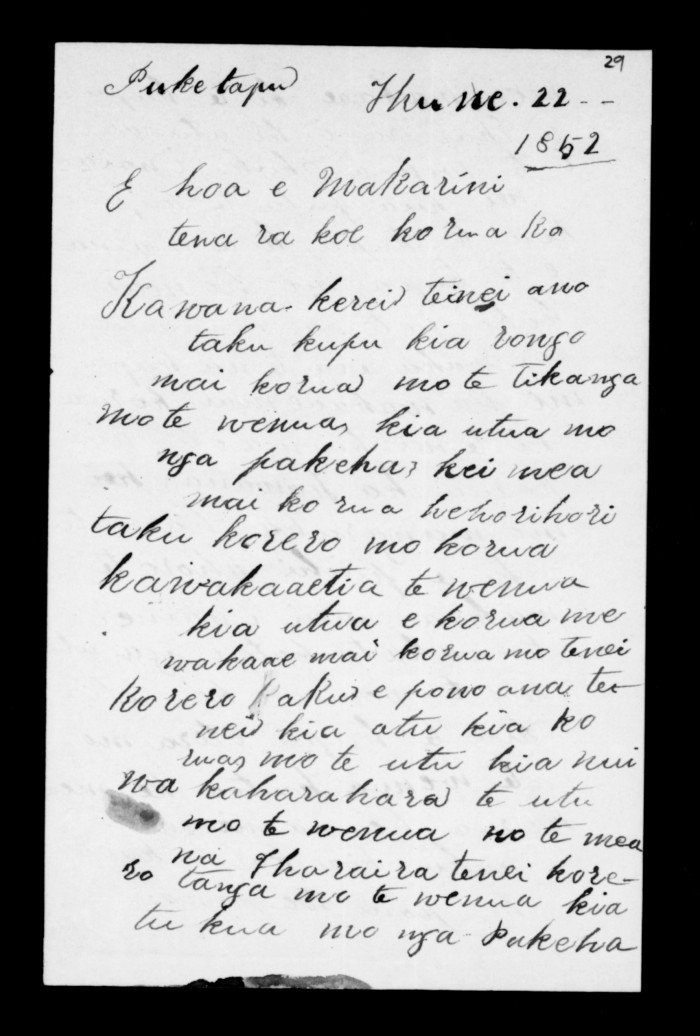 29
Puketapu Thune. 22 - -
1852
E hoa e Makarini
tena ra koe korua ko
Kawana kerei teinei ano
taku kupu kia rongo
mai korua mo te tikanga
mo te wenua, kia utua mo
nga pakeha, kei mea
mai korua hehorihori
taku korero mo korua
kawakaaetia te wenua
kia utua e korua me
wakaae mai korua mo tenei
korero kaku e pono ana te-
nei kia atu kia ko
rua, mo te utu kia nui
wa kaharahara te utu
mo te wenua no te mea
na Tharaira tenei kore-
ro tanga mo te wenua kia
tukua mo nga Pakeha